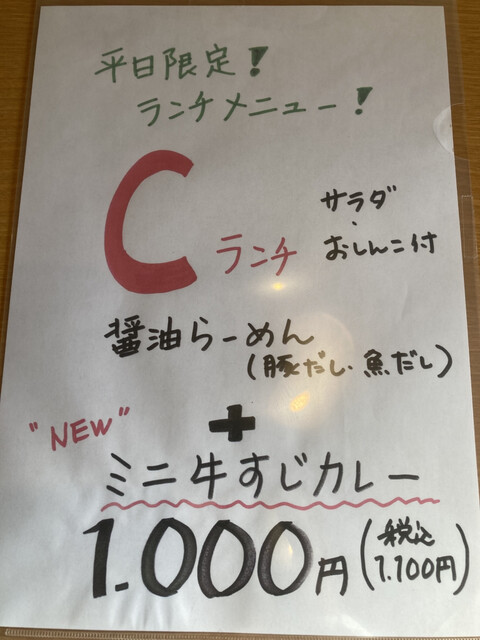 平日限定!
ランチメニュー!
C ランチ
サラダ
・
おしんこ付
醤油らーめん
(豚だし・魚だし)
"NEW"
+
ミニ牛すじカレー
1.000円(税込
1.100円)